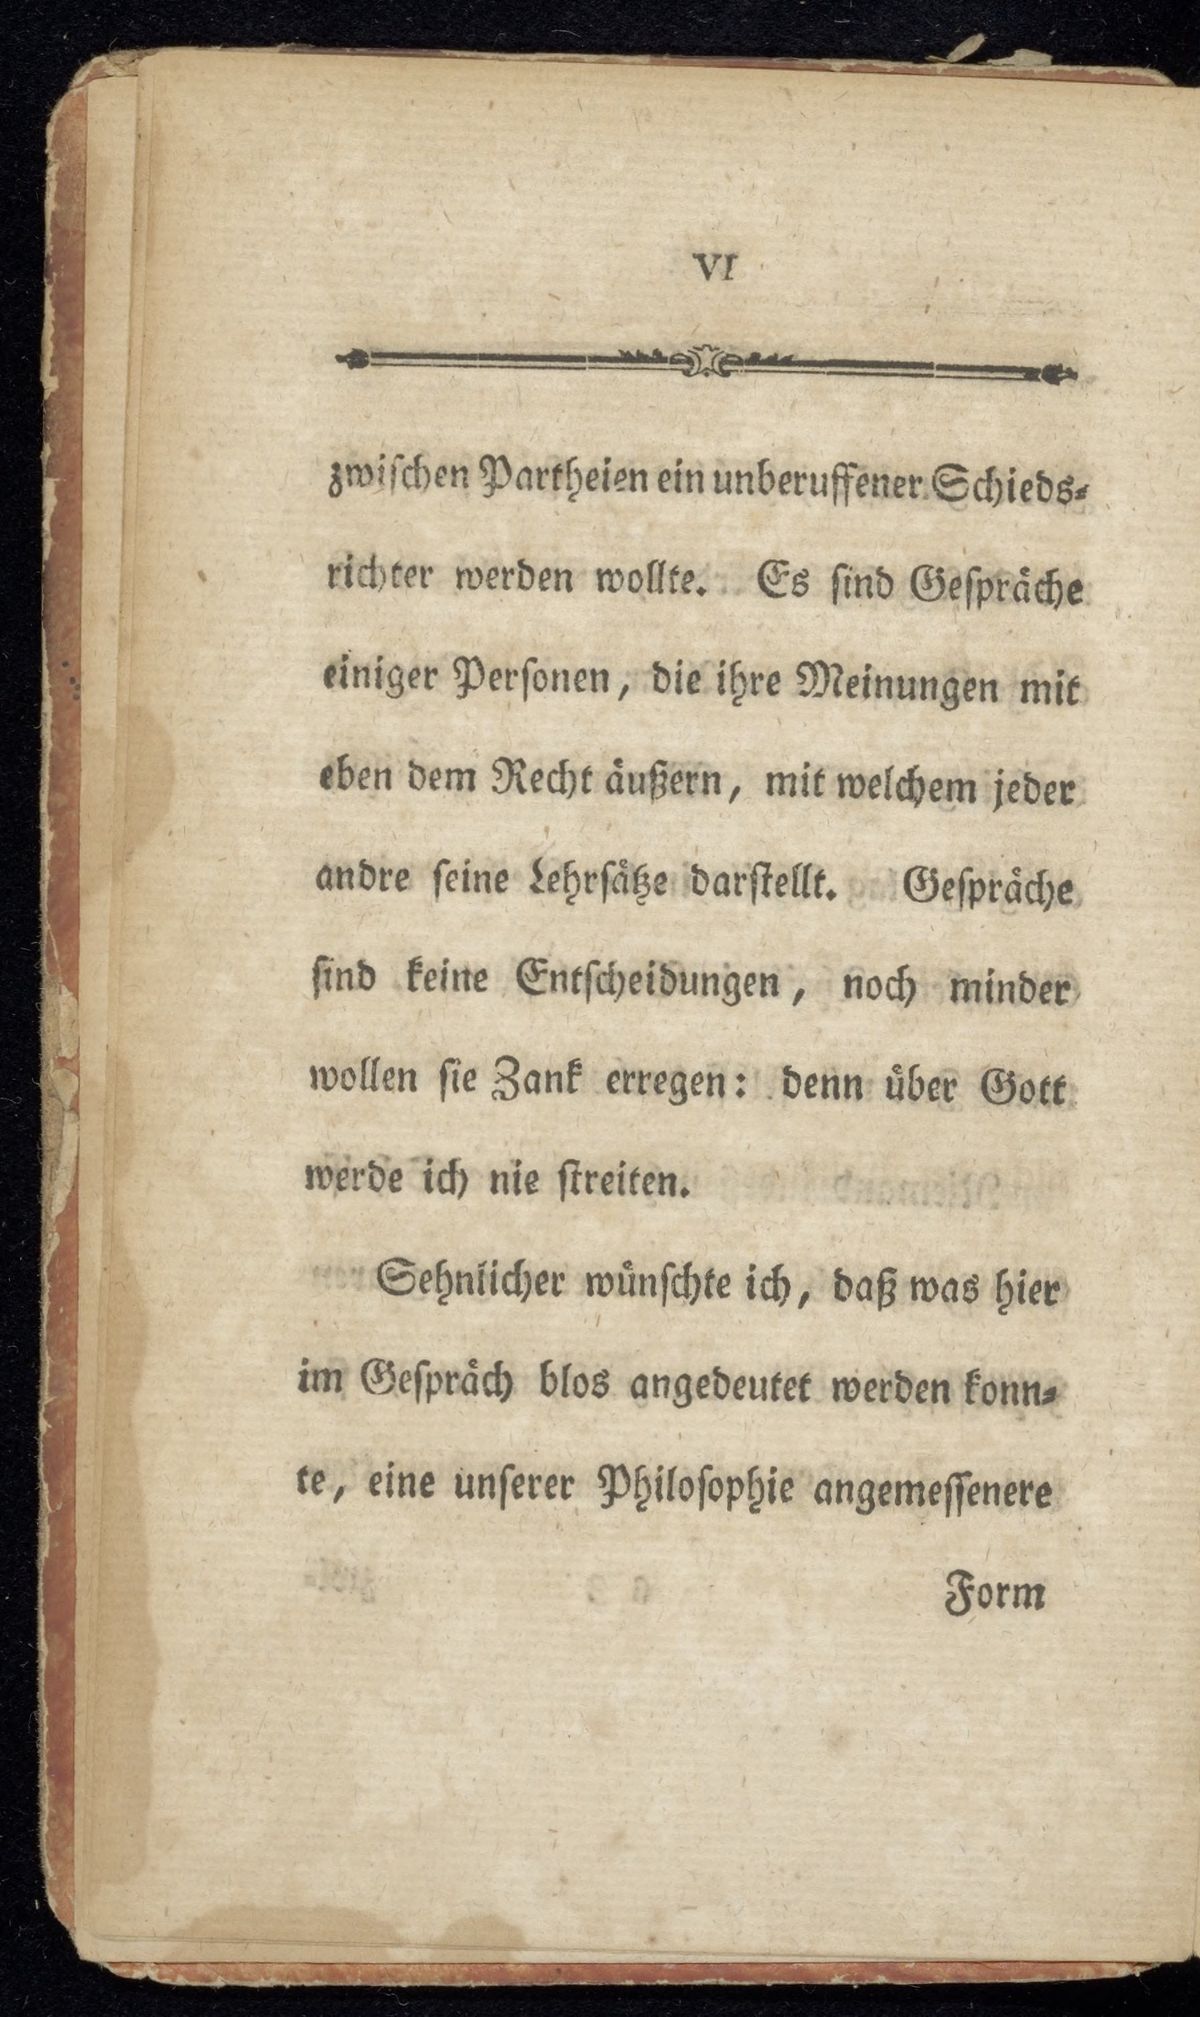 VI
zwiſchen Partheien ein unberuffener Schieds⸗
richter werden wollte. Es ſind Geſpräche
einiger Perſonen, die ihre Meinungen mit
eben dem Recht äußern, mit welchem jeder
andre ſeine Lehrſätze darſtellt. Geſpräche
ſind keine Entſcheidungen, noch minder
wollen ſie Zank erregen: denn über Gott
werde ich nie ſtreiten.
Sehnlicher wünſchte ich, daß was hier
im Geſpräch blos angedeutet werden konn⸗
te, eine unſerer Philoſophie angemeſſenere
Form